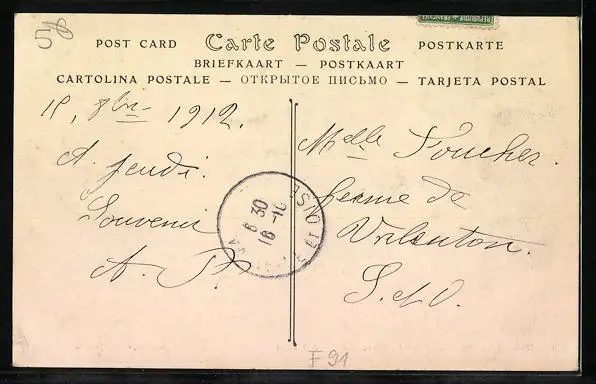 58
REPUBLIQUE FRANÇAISE
POST CARD Carte Postale POSTKARTE
BRIEFKAART — POSTKAART
CARTOLINA POSTALE — ОТКРЫТОЕ ПИСЬМО — TARJETA POSTAL
15, 8bre 1912.
A jeudi.
Souvenir
A. P.
Melle Foucher.
ferme de
S. et O.
6 30
16 - 10
OISE
ET
F 91